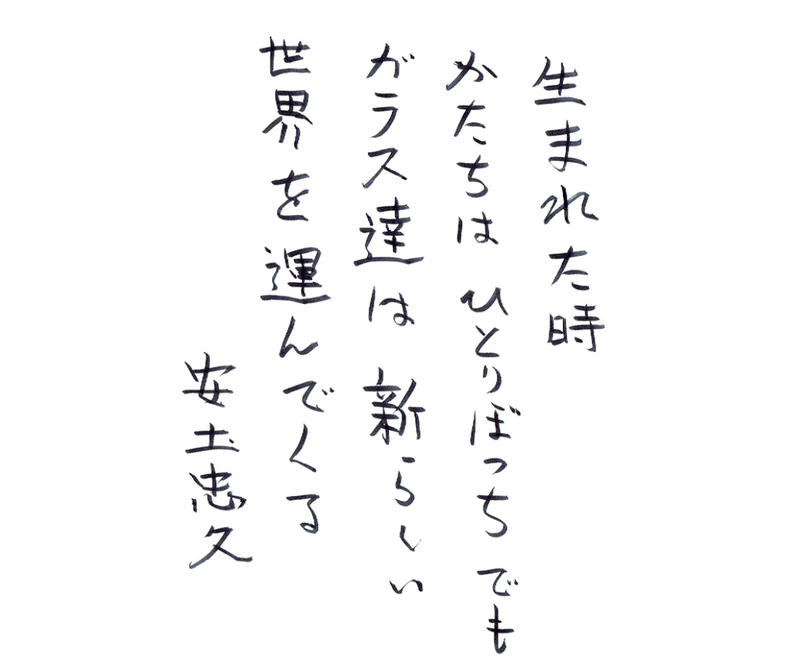 生まれた時
かたちは ひとりぼっちでも
ガラス達は 新らしい
世界を運んでくる
安土忠久